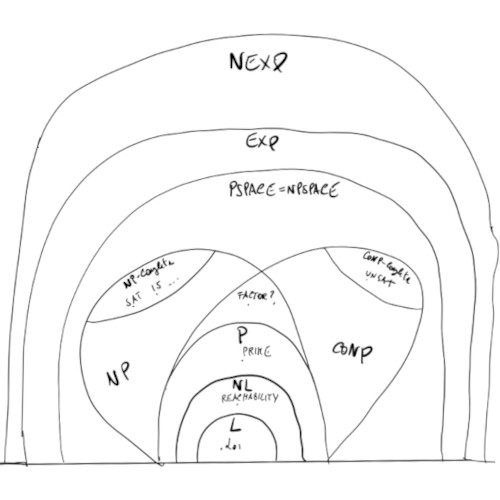 NEXP
EXP
PSPACE=NPSPACE
NP-Complete
SAT IS ...
CONP-Complete
UNSAT
FACTOR?
P
PRIME
NP
CONP
NL
REACHABILITY
L